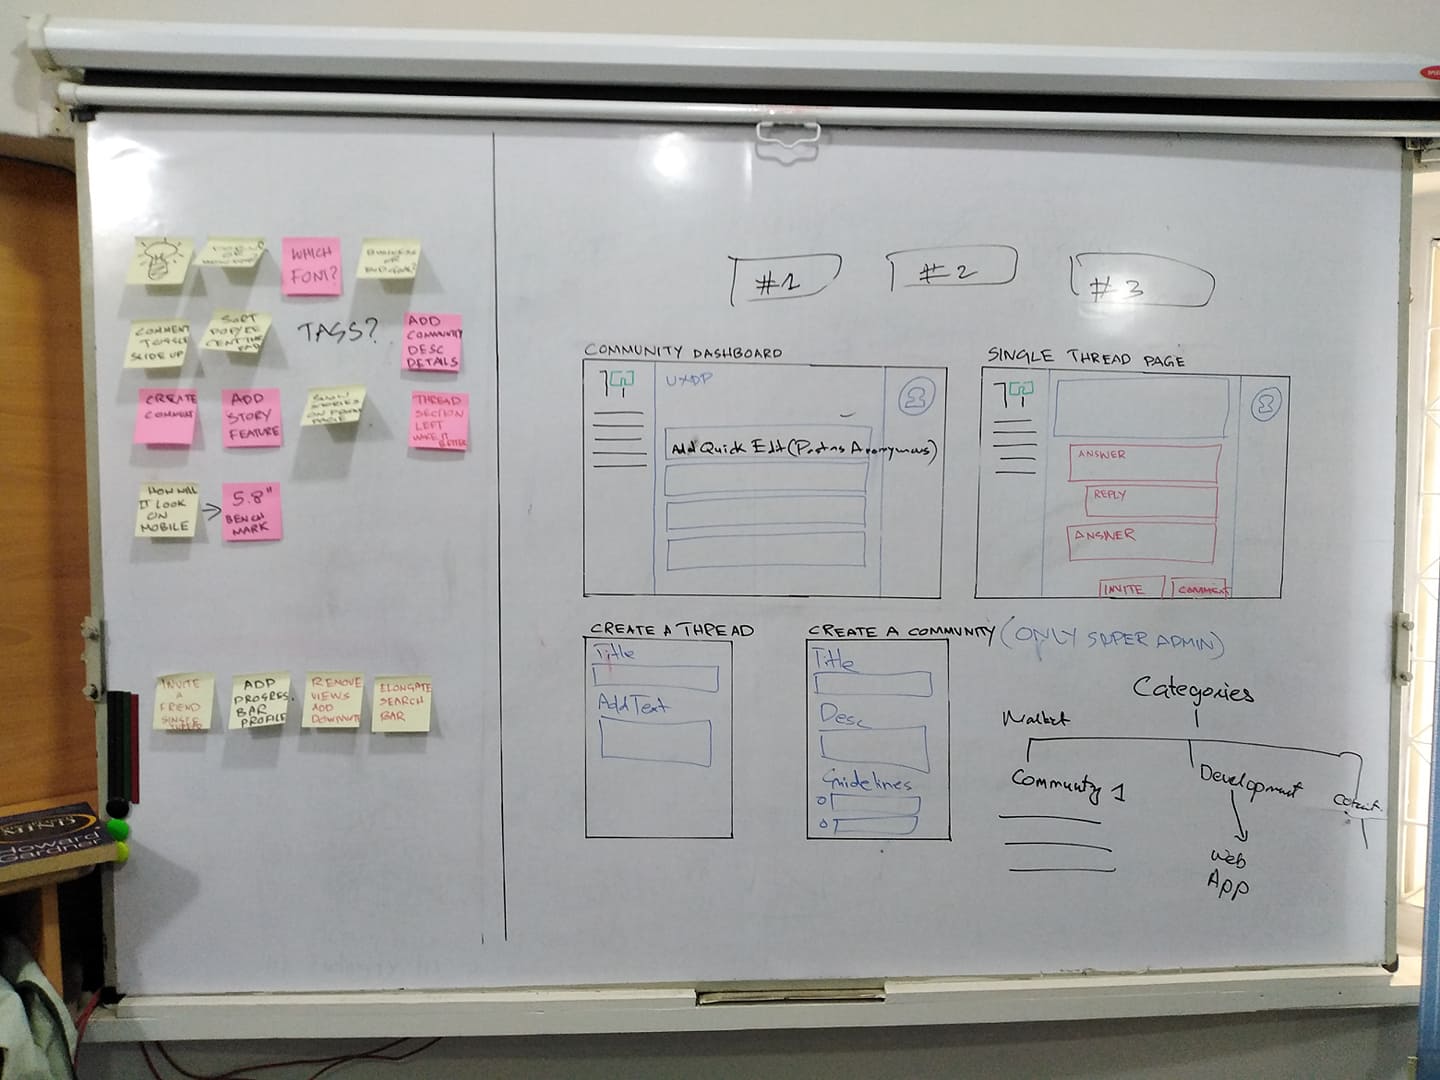 WHICH
FONT?
BUSINESS
OR
COMMENT
TOGGLE
SLIDE UP
SORT
TAGS?
ADD
COMMUNITY
DESC
DETAILS
CREATE
COMMENT
ADD
STORY
FEATURE
SHOW
STORIES
THREAD
SECTION
LEFT
MAKE IT
BETTER
HOW WILL
IT LOOK
ON
MOBILE
5.8"
BENCH
MARK
INVITE
A
FRIEND
SINGLE
ADD
PROGRESS.
BAR
PROFILE
REMOVE
VIEWS
ADD
DOWNVOTE
ELONGATE
SEARCH
BAR
#1
#2
#3
COMMUNITY DASHBOARD
UXDP
Add Quick Edit (Post as Anonymous)
SINGLE THREAD PAGE
ANSWER
REPLY
ANSWER
INVITE
COMMENT
CREATE A THREAD
Title
Add Text
CREATE A COMMUNITY (ONLY SUPER ADMIN)
Title
Desc
Guidelines
Categories
Market
Community 1
Development
Web
App
Howard
Gardner